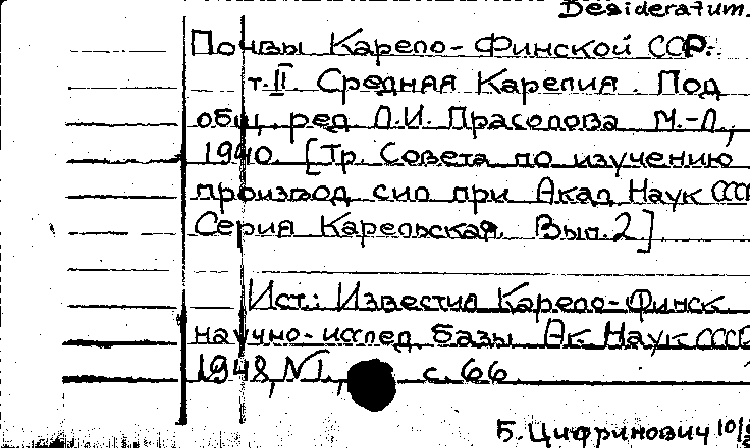 Desideratum.
Почвы Карело-Финской ССР.
т. II. Средняя Карелия. Под
общ. ред. Л.И. Прасолова М.-Л.,
1940. [Тр. Совета по изучению
производ сил при Акад Наук СССР
Серия Карельская. Вып. 2]
Ист.: Известия Карело-Финск
научно-исслед. базы Ак. Наук СССР
1948, №1, с. 66
Б. Цифринович 10/